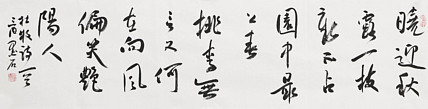 曉迎秋
露一枝
新不占
園中最
上春
桃李無
言又何
在向風
偏笑艷
陽人
杜牧詩